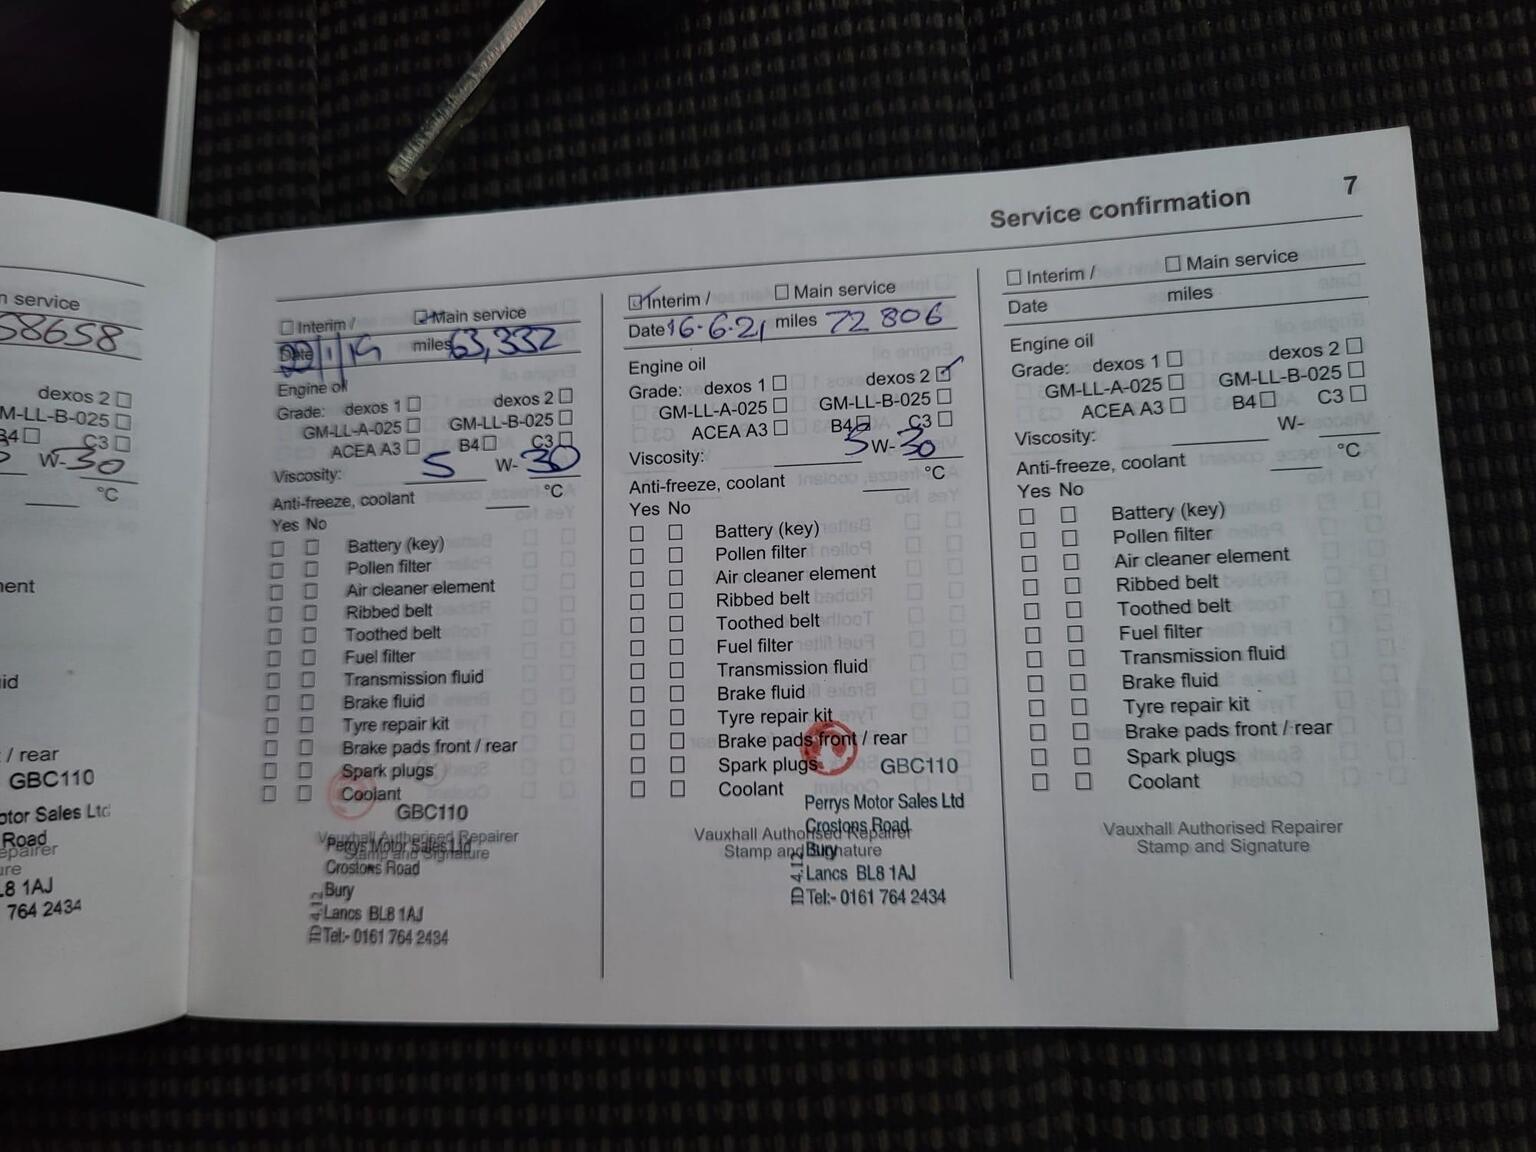 n service
58658
dexos 2
M-LL-B-025
B4 C3
W-30
°C
ent
id
/ rear
GBC110
otor Sales Ltd
Road
epairer
ure
L8 1AJ
764 2434
Service confirmation 7
Interim / Main service
Date /1/19 miles 63,332
Engine oil
Grade: dexos 1 dexos 2
GM-LL-A-025 GM-LL-B-025
ACEA A3 B4 C3
Viscosity: 5 W-30
Anti-freeze, coolant °C
Yes No
Battery (key)
Pollen filter
Air cleaner element
Ribbed belt
Toothed belt
Fuel filter
Transmission fluid
Brake fluid
Tyre repair kit
Brake pads front / rear
Spark plugs
Coolant
GBC110
Vauxhall Authorised Repairer
Stamp and Signature
Perrys Motor Sales Ltd
Crostons Road
Bury
Lancs BL8 1AJ
Tel:- 0161 764 2434
ID 412
Interim / Main service
Date 16-6-21 miles 72806
Engine oil
Grade: dexos 1 dexos 2
GM-LL-A-025 GM-LL-B-025
ACEA A3 B4 C3
Viscosity: 5 W-30
Anti-freeze, coolant °C
Yes No
Battery (key)
Pollen filter
Air cleaner element
Ribbed belt
Toothed belt
Fuel filter
Transmission fluid
Brake fluid
Tyre repair kit
Brake pads front / rear
Spark plugs
Coolant
GBC110
Perrys Motor Sales Ltd
Crostons Road
Vauxhall Authorised Repairer
Stamp and Signature
Bury
Lancs BL8 1AJ
Tel:- 0161 764 2434
ID 412
Interim / Main service
Date miles
Engine oil
Grade: dexos 1 dexos 2
GM-LL-A-025 GM-LL-B-025
ACEA A3 B4 C3
Viscosity: W-
Anti-freeze, coolant °C
Yes No
Battery (key)
Pollen filter
Air cleaner element
Ribbed belt
Toothed belt
Fuel filter
Transmission fluid
Brake fluid
Tyre repair kit
Brake pads front / rear
Spark plugs
Coolant
Vauxhall Authorised Repairer
Stamp and Signature